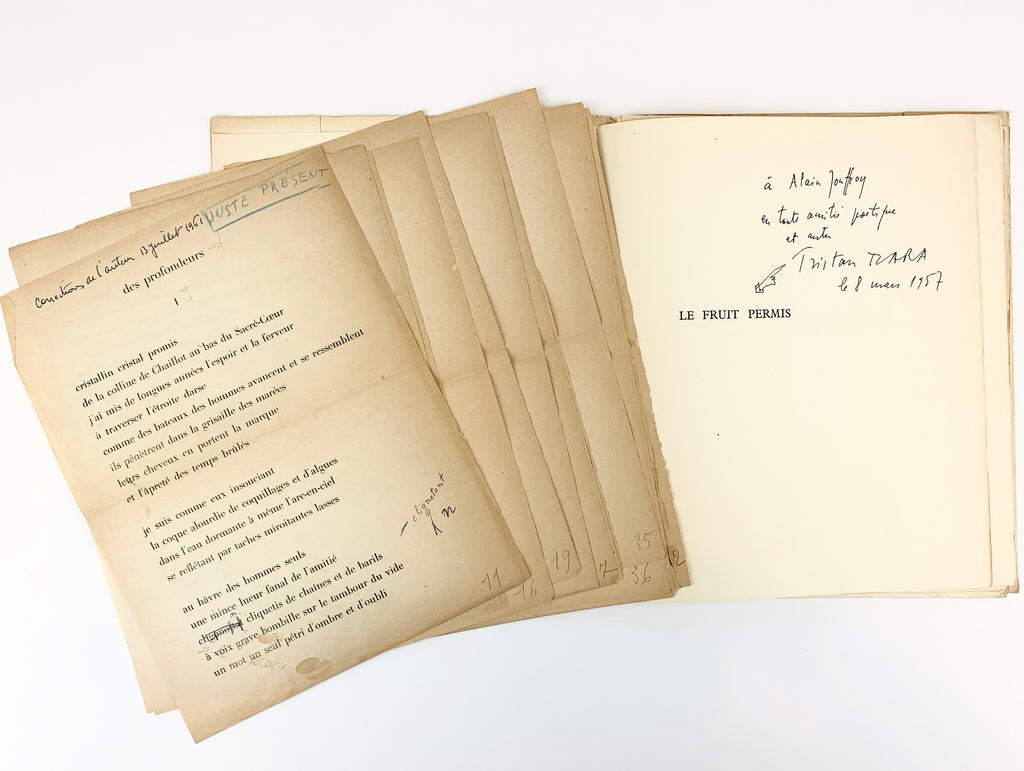 JUSTE PRÉSENT
corrections de l'auteur 13 juillet 1961
des profondeurs
1
cristallin cristal promis
de la colline de Chaillot au bas du Sacré-Cœur
j'ai mis de longues années l'espoir et la ferveur
à traverser l'étroite darse
comme des bateaux des hommes avancent et se ressemblent
ils pénètrent dans la grisaille des marées
leurs cheveux en portent la marque
et l'âpreté des temps brûlés
je suis comme eux insouciant
la coque alourdie de coquillages et d'algues
dans l'eau dormante à même l'arc-en-ciel
se reflétant par taches miroitantes lasses
clignotant
n
au hâvre des hommes seuls
une mince lueur fanal de l'amitié
cliquetis de chaînes et de barils
à voix grave bombille sur le tambour du vide
un mot un seul pétri d'ombre et d'oubli
11
16
19
7
35
36
12
à Alain Jouffroy
en toute amitié poétique
et
Tristan TZARA
le 8 mars 1957
LE FRUIT PERMIS